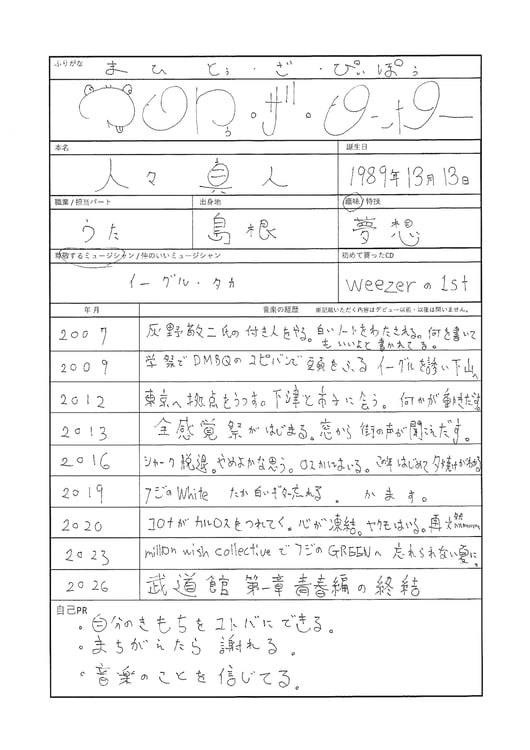 ふりがな
まひとぅ・ざ・ぴぃぽぅ
本名
誕生日
人々 真人
1989年13月13日
職業/担当パート
出身地
趣味/特技
うた
島根
夢想
尊敬するミュージシャン/仲のいいミュージシャン
初めて買ったCD
イーグル・タカ
weezerの1st
年月
音楽の経歴
※記載いただく内容はデビュー以前・以後は問いません。
2007
灰野敬二氏の付き人をやる。白いノートをわたされる。何を書いて
もいいよと書かれてる。
2009
学祭でDMBQのコピバンで頭をふる イーグルを誘い下山へ
2012
東京へ拠点をうつす。下津と市子に会う。何かが動きだす
2013
全感覚祭がはじまる。窓から街の声が聞こえだす。
2016
シャーク脱退。やめよかな思う。ロスカルにはいる。 はじめて夕焼けが
2019
フジのWhite たか白いギター忘れる。かます。
2020
コロナがカルロスをつれてく。心が凍結。ヤクモはいる。再燃
2023
million wish collectiveでフジのGREENへ 忘れられない夏に。
2026
武道館 第一章青春編の終結
自己PR
・自分のきもちをコトバにできる。
・まちがえたら謝れる。
・音楽のことを信じてる。